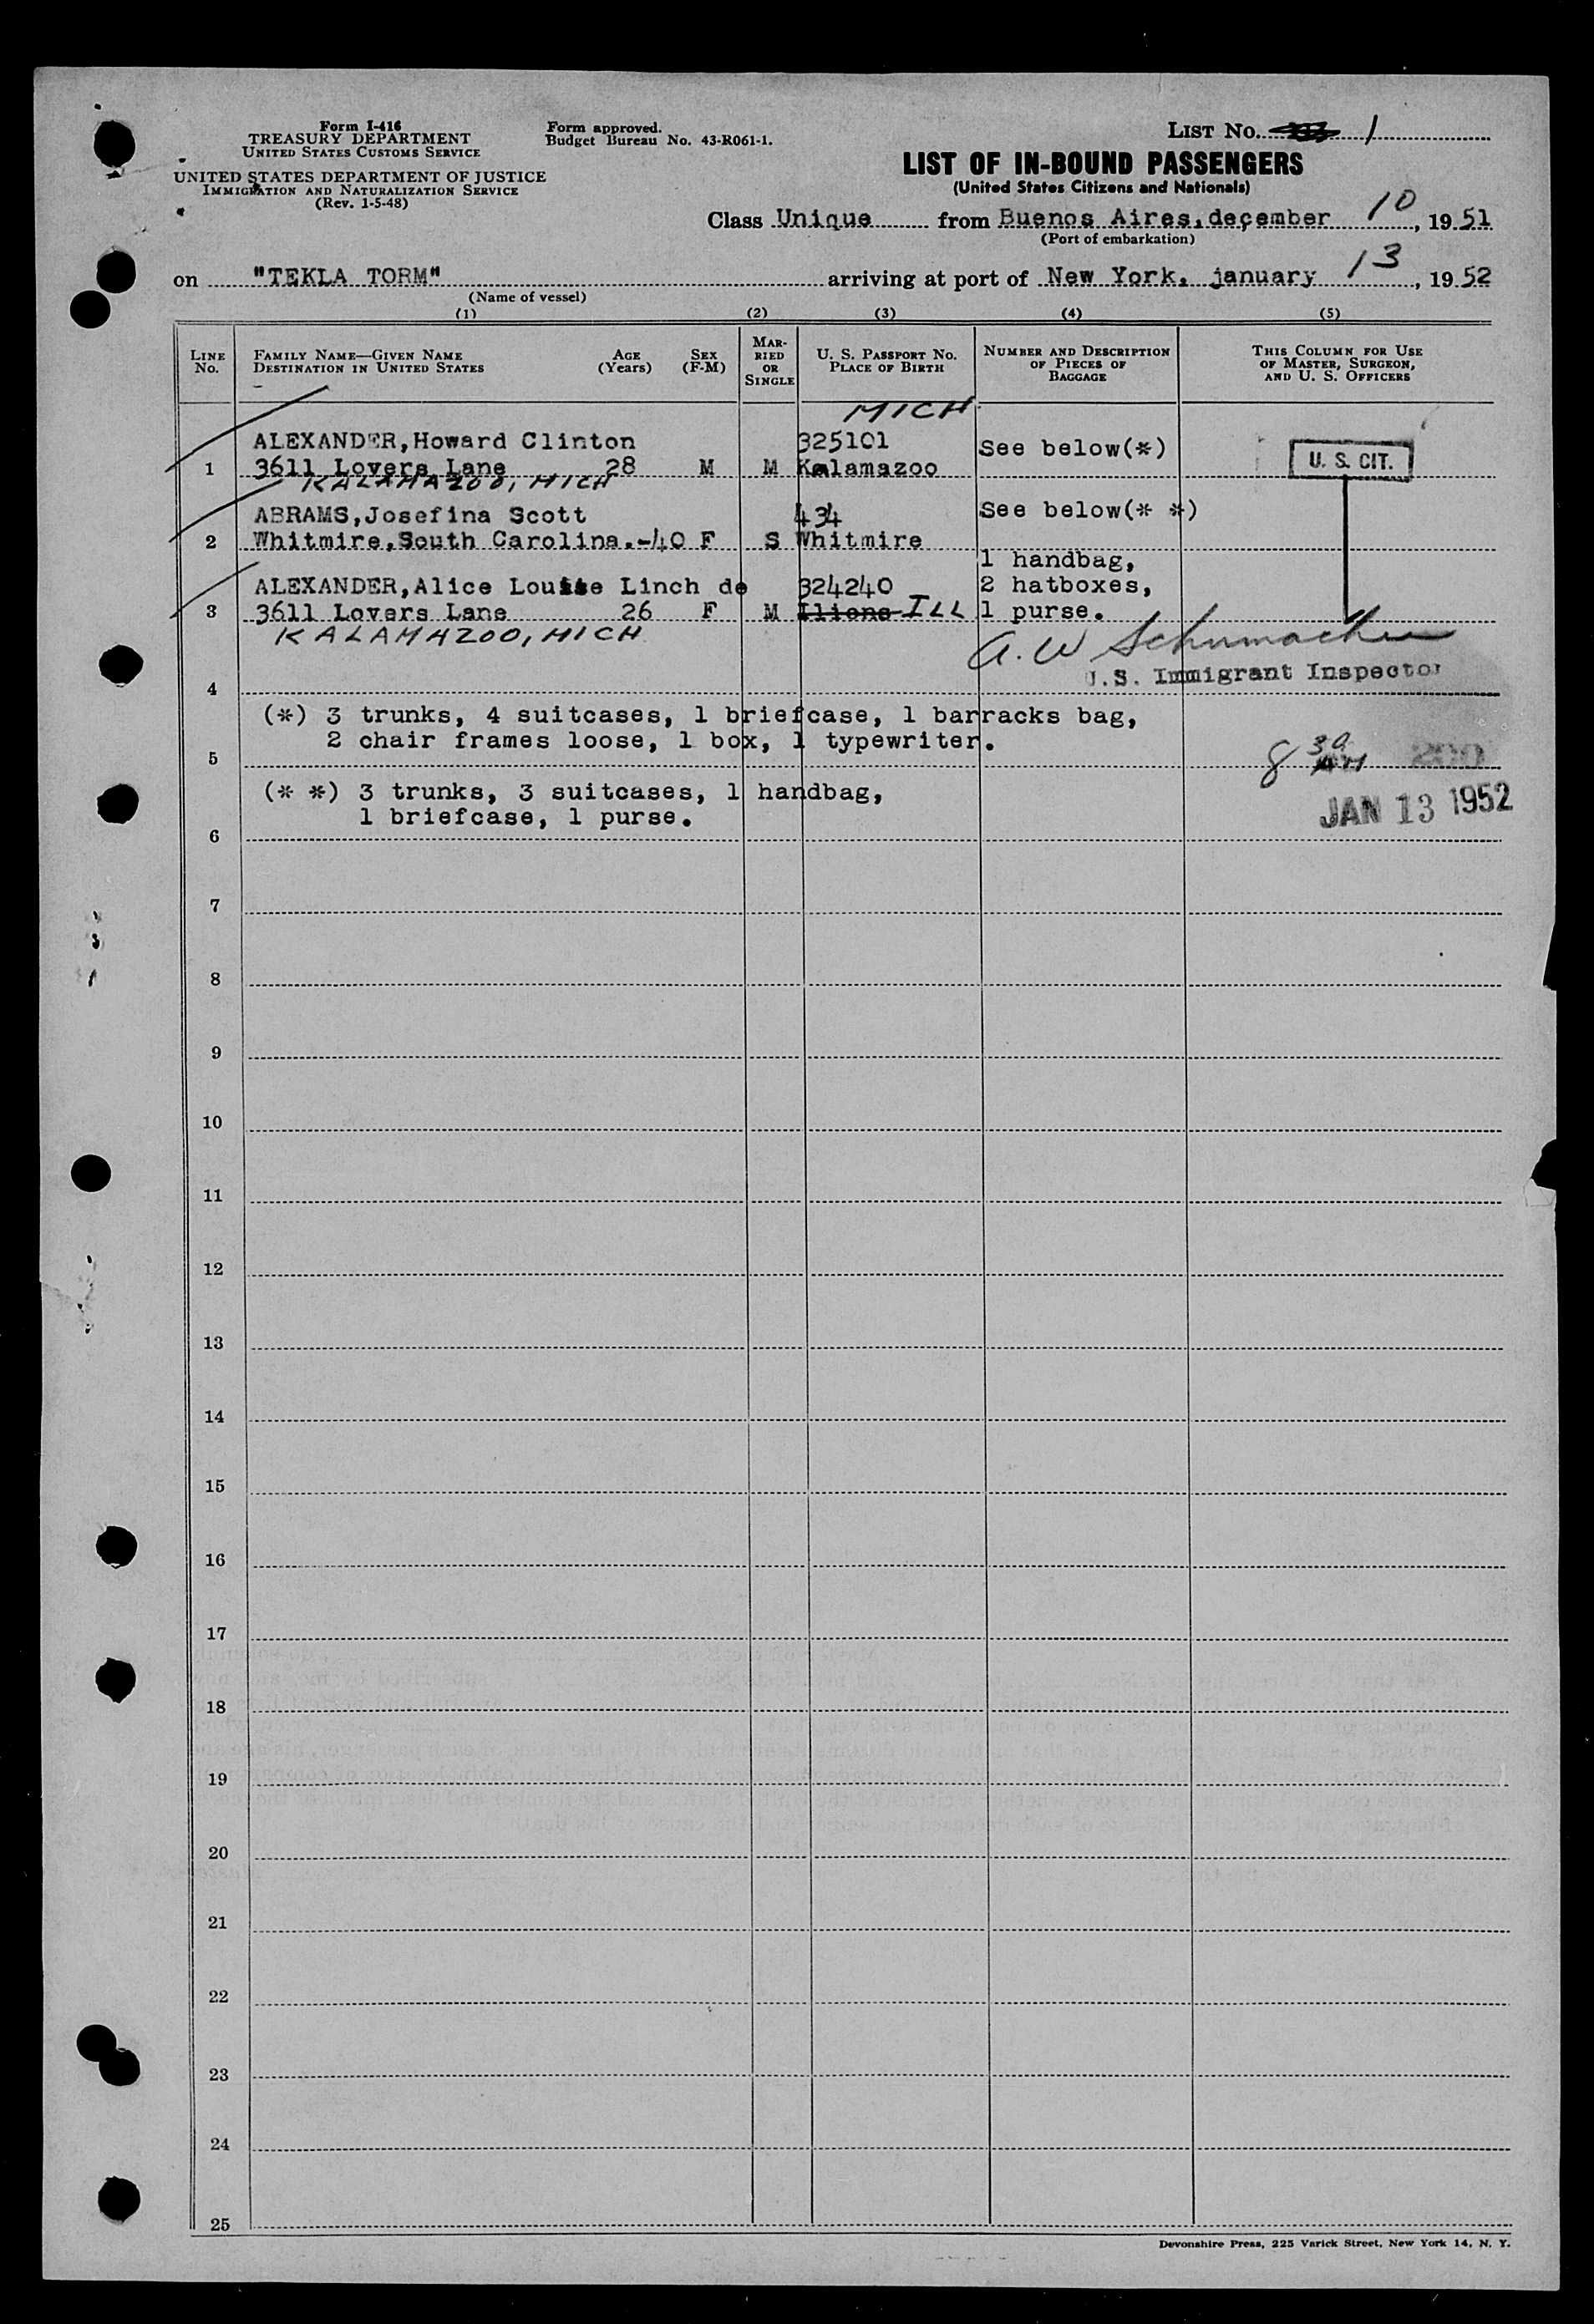 Form I-416
TREASURY DEPARTMENT
UNITED STATES CUSTOMS SERVICE
UNITED STATES DEPARTMENT OF JUSTICE
IMMIGRATION AND NATURALIZATION SERVICE
(Rev. 1-5-48)
Form approved.
Budget Bureau No. 43-R061-1.
LIST No. 1
LIST OF IN-BOUND PASSENGERS
(United States Citizens and Nationals)
Class Unique from Buenos Aires, december 10, 1951
(Port of embarkation)
on "TEKLA TORM" arriving at port of New York, january 13, 1952
(Name of vessel)
(1) (2) (3) (4) (5)
LINE No. FAMILY NAME—GIVEN NAME DESTINATION IN UNITED STATES AGE (Years) SEX (F-M) MARRIED OR SINGLE U. S. PASSPORT NO. PLACE OF BIRTH NUMBER AND DESCRIPTION OF PIECES OF BAGGAGE THIS COLUMN FOR USE OF MASTER, SURGEON, AND U. S. OFFICERS
MICH.
ALEXANDER, Howard Clinton 325101 See below(*)
1 3611 Lovers Lane 28 M M Kalamazoo U. S. CIT.
KALAMAZOO, MICH
ABRAMS, Josefina Scott 434 See below(* *)
2 Whitmire, South Carolina.-40 F S Whitmire
1 handbag,
ALEXANDER, Alice Louise Linch de 324240 2 hatboxes,
3 3611 Lovers Lane 26 F M Ilions ILL 1 purse.
KALAMAZOO, MICH
A. W Schumacher
U.S. Immigrant Inspector
4
(*) 3 trunks, 4 suitcases, 1 briefcase, 1 barracks bag,
2 chair frames loose, 1 box, 1 typewriter.
5
8 30 AM 200
(* *) 3 trunks, 3 suitcases, 1 handbag,
1 briefcase, 1 purse.
JAN 13 1952
6
7
8
9
10
11
12
13
14
15
16
17
18
19
20
21
22
23
24
25
Devonshire Press, 225 Varick Street, New York 14, N. Y.